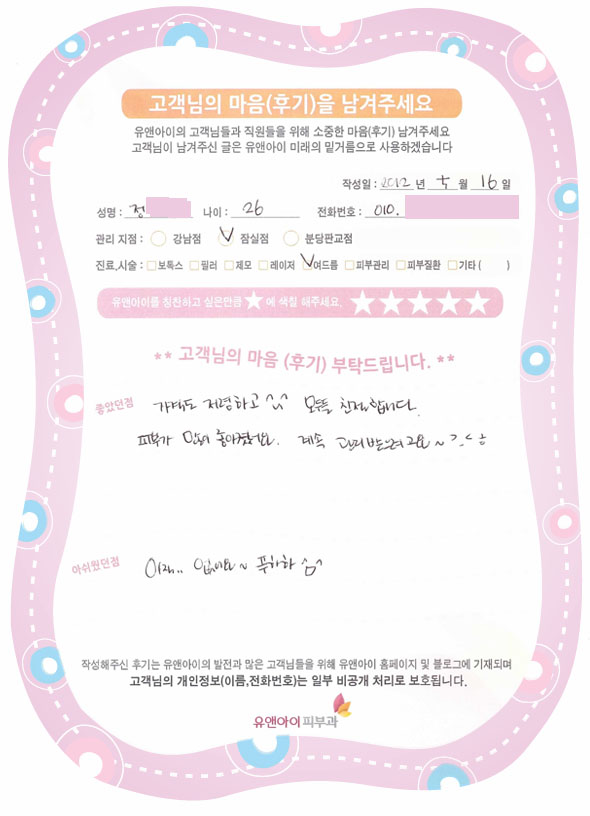 고객님의 마음(후기)을 남겨주세요
유앤아이의 고객님들과 직원들을 위해 소중한 마음(후기) 남겨주세요
고객님이 남겨주신 글은 유앤아이 미래의 밑거름으로 사용하겠습니다
작성일 : 2012 년 월 16 일
성명 : 정 나이 : 26 전화번호 : 010.
관리 지점 : 강남점 잠실점 분당판교점
진료,시술 : 보톡스 필러 제모 레이저 여드름 피부관리 피부질환 기타 ( )
유앤아이를 칭찬하고 싶은만큼 ★ 에 색칠 해주세요. ★★★★★
** 고객님의 마음 (후기) 부탁드립니다. **
좋았던점 가격도 저렴하고 ^^ 모두들 친절합니다.
피부가 많이 좋아졌어요. 계속 관리받으려고요~
아쉬웠던점 없어요~ 푸하하
작성해주신 후기는 유앤아이의 발전과 많은 고객님들을 위해 유앤아이 홈페이지 및 블로그에 기재되며
고객님의 개인정보(이름,전화번호)는 일부 비공개 처리로 보호됩니다.
유앤아이피부과